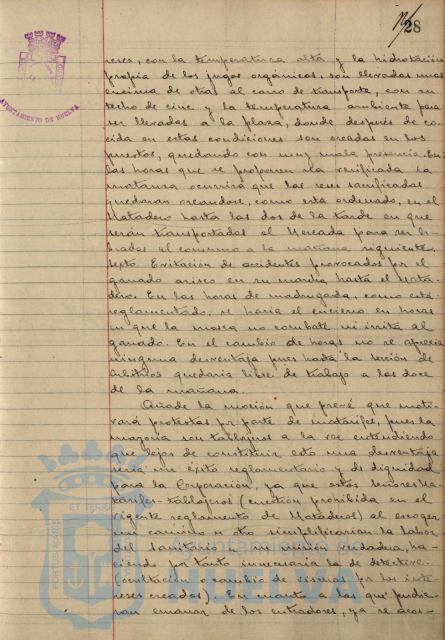 28
AYUNTAMIENTO DE HUELVA
reses, con la temperatura alta y la hidratación
propia de los jugos orgánicos, son llevadas unas
encima de otras al carro de transporte, con su
techo de cinc y la temperatura ambiente para
ser llevadas a la plaza, donde después de co-
cida en estas condiciones son oreadas en los
puestos, quedando con muy mala presencia. En
las horas que se proponen sea verificada la
matanza ocurrirá que las reses sacrificadas
quedarán oreandose, como está ordenado, en el
Matadero hasta las dos de la tarde en que
serán transportadas al Mercado para ser li-
bradas al consumo a la mañana siguiente.
Sexto Evitación de accidentes provocados por el
ganado arisco en su marcha hasta el Mata-
dero. En las horas de madrugada, como está
reglamentado, se haría el encierro en horas
en que la mosca no combate ni irrita al
ganado. En el cambio de horas no se aprecia
ninguna desventaja pues hasta la sección de
Arbitrios quedaría libre de trabajo a las doce
de la mañana.
Añade la moción que prevé que moti-
vará protestas por parte de matarifes, pues la
mayoría son tablajeros a la vez entendiendo
que lejos de constituir esto una desventaja
sería un éxito reglamentario y de dignidad
para la Corporación, ya que estos señores Ma-
tarifes-tablajeros (cuestión prohibida en el
vigente reglamento de Mataderos) al escoger
un camino u otro simplificarían la labor
del sanitario en su misión verdadera, ha-
ciendo por tanto innecesaria la de detective.
(ocultación o cambio de vísceras por los inte-
reses creados). En cuanto a las que pudie-
ran emanar de los entradores, ya se acos-
Ayuntamiento de
HUELVA